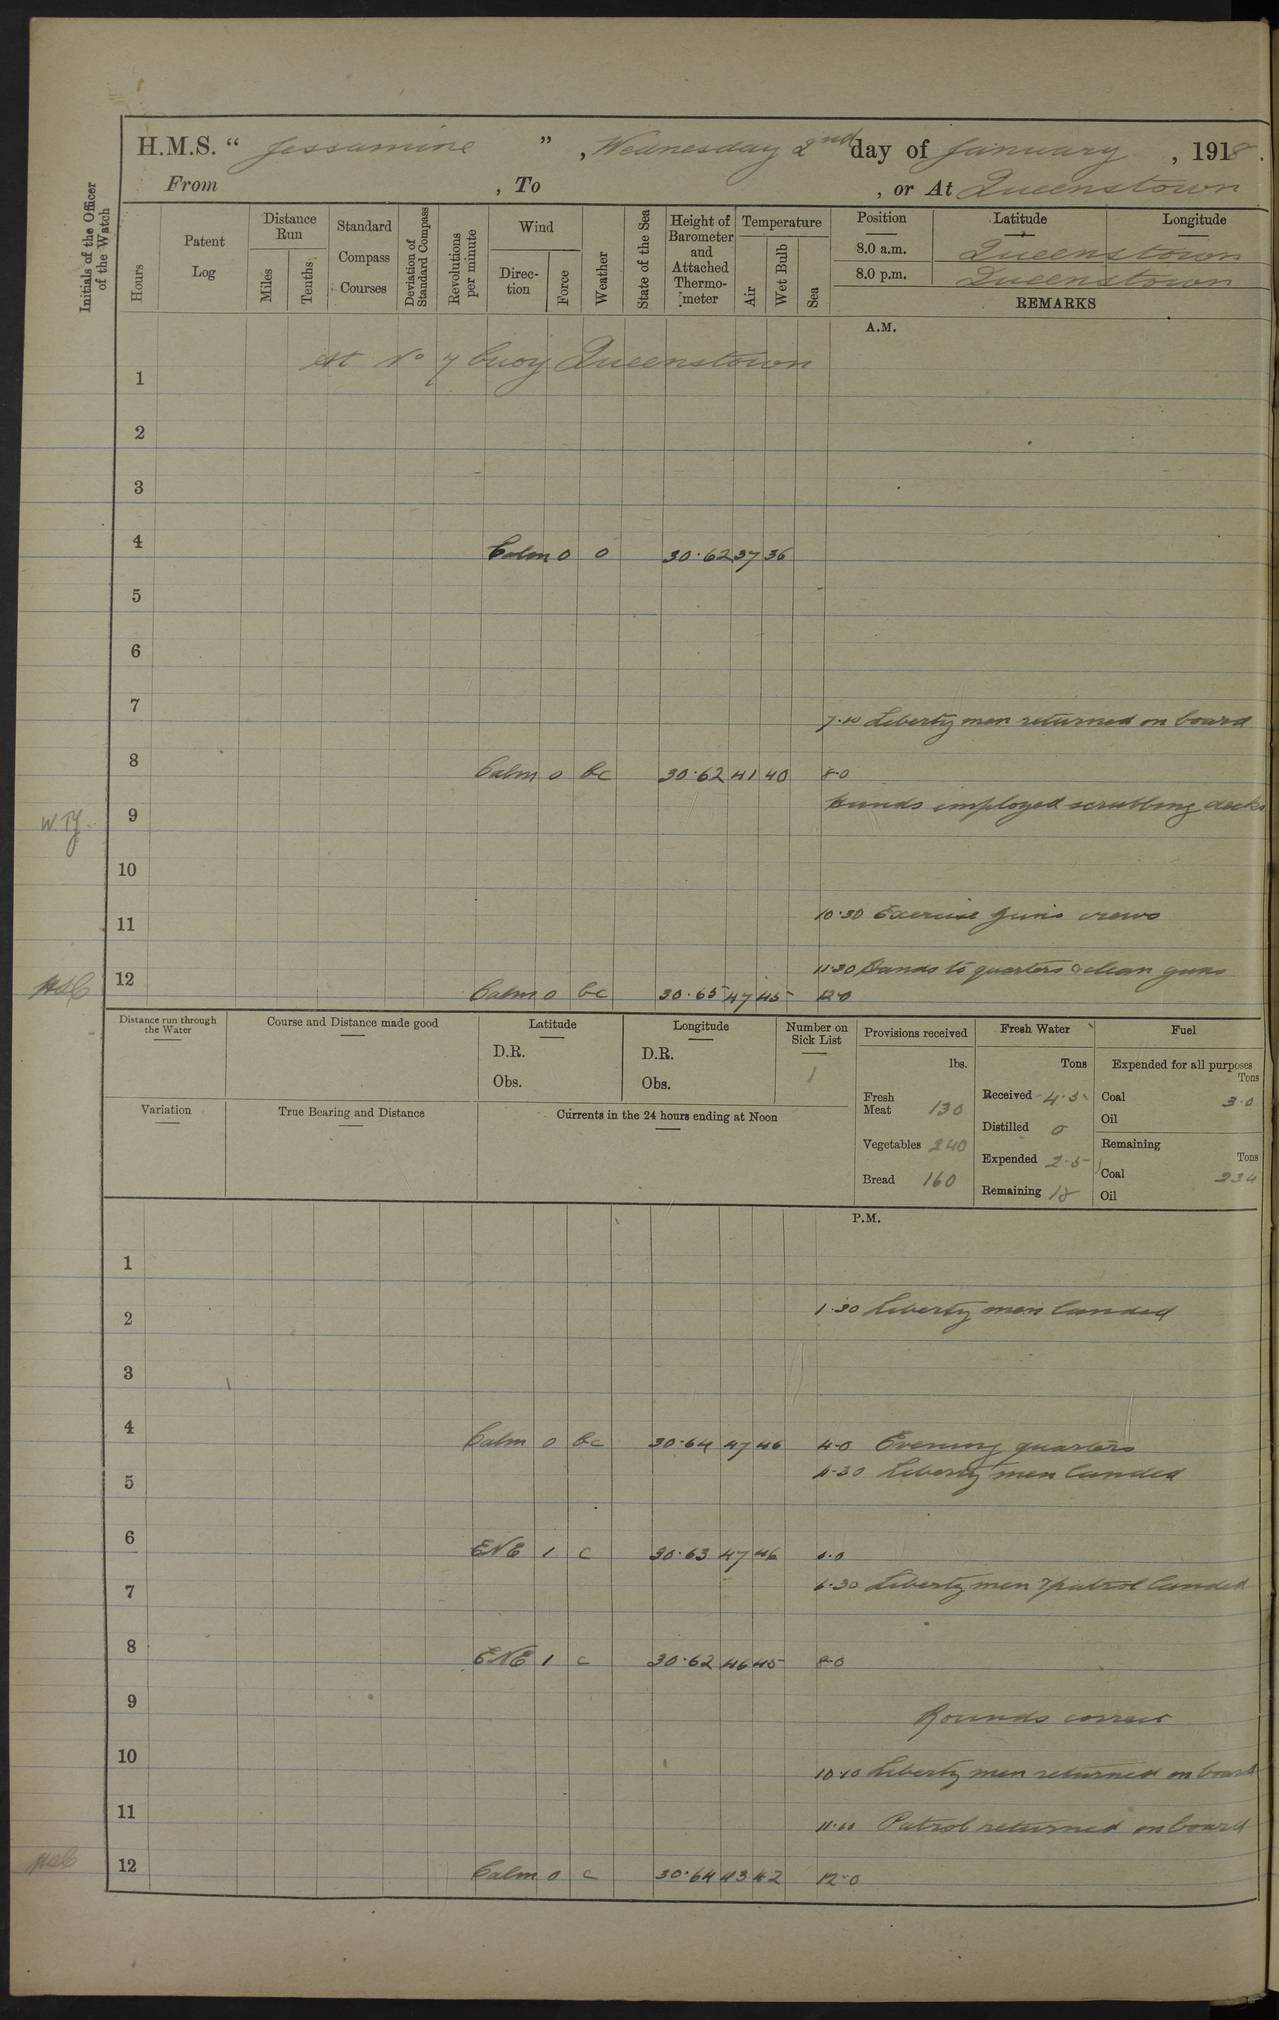 H.M.S. “ Jessamine ” , Wednesday 2nd day of January , 1918 .
From , To , or At Queenstown
Initials of the Officer of the Watch
Hours
Patent Log
Distance Run
Miles
Tenths
Standard Compass Courses
Deviation of Standard Compass
Revolutions per minute
Wind
Direc-tion
Force
Weather
State of the Sea
Height of Barometer and Attached Thermo-meter
Temperature
Air
Wet Bulb
Sea
Position Latitude Longitude
8.0 a.m. Queenstown
8.0 p.m. Queenstown
REMARKS
A.M.
At No 7 buoy Queenstown
1
2
3
4 Calm 0 0 30.62 37 36
5
6
7
7.10 Liberty men returned on board
8 Calm 0 bc 30.62 41 40 8.0
Hands employed scrubbing decks
9
10
10.30 Exercise guns crews
11
11.30 Hands to quarters & clean guns
12 Calm 0 bc 30.65 47 45 12.0
Distance run through the Water
Course and Distance made good
Latitude
D.R.
Obs.
Longitude
D.R.
Obs.
Number on Sick List
1
Provisions received
lbs.
Fresh Meat 130
Vegetables 240
Bread 160
Fresh Water
Tons
Received 4.5
Distilled 0
Expended 2.5
Remaining 18
Fuel
Expended for all purposes
Tons
Coal 3.0
Oil
Remaining
Tons
Coal 234
Oil
Variation
True Bearing and Distance
Currents in the 24 hours ending at Noon
P.M.
1
1.30 Liberty men landed
2
3
4 Calm 0 bc 30.64 47 46 4.0 Evening quarters
4.30 Liberty men landed
5
6 ENE 1 c 30.63 47 46 6.0
6.30 Liberty men & patrol landed
7
8 ENE 1 c 30.62 46 45 8.0
9
Rounds correct
10
10.10 Liberty men returned on board
11
Patrol returned on board
12 Calm 0 c 30.64 43 42 12.0